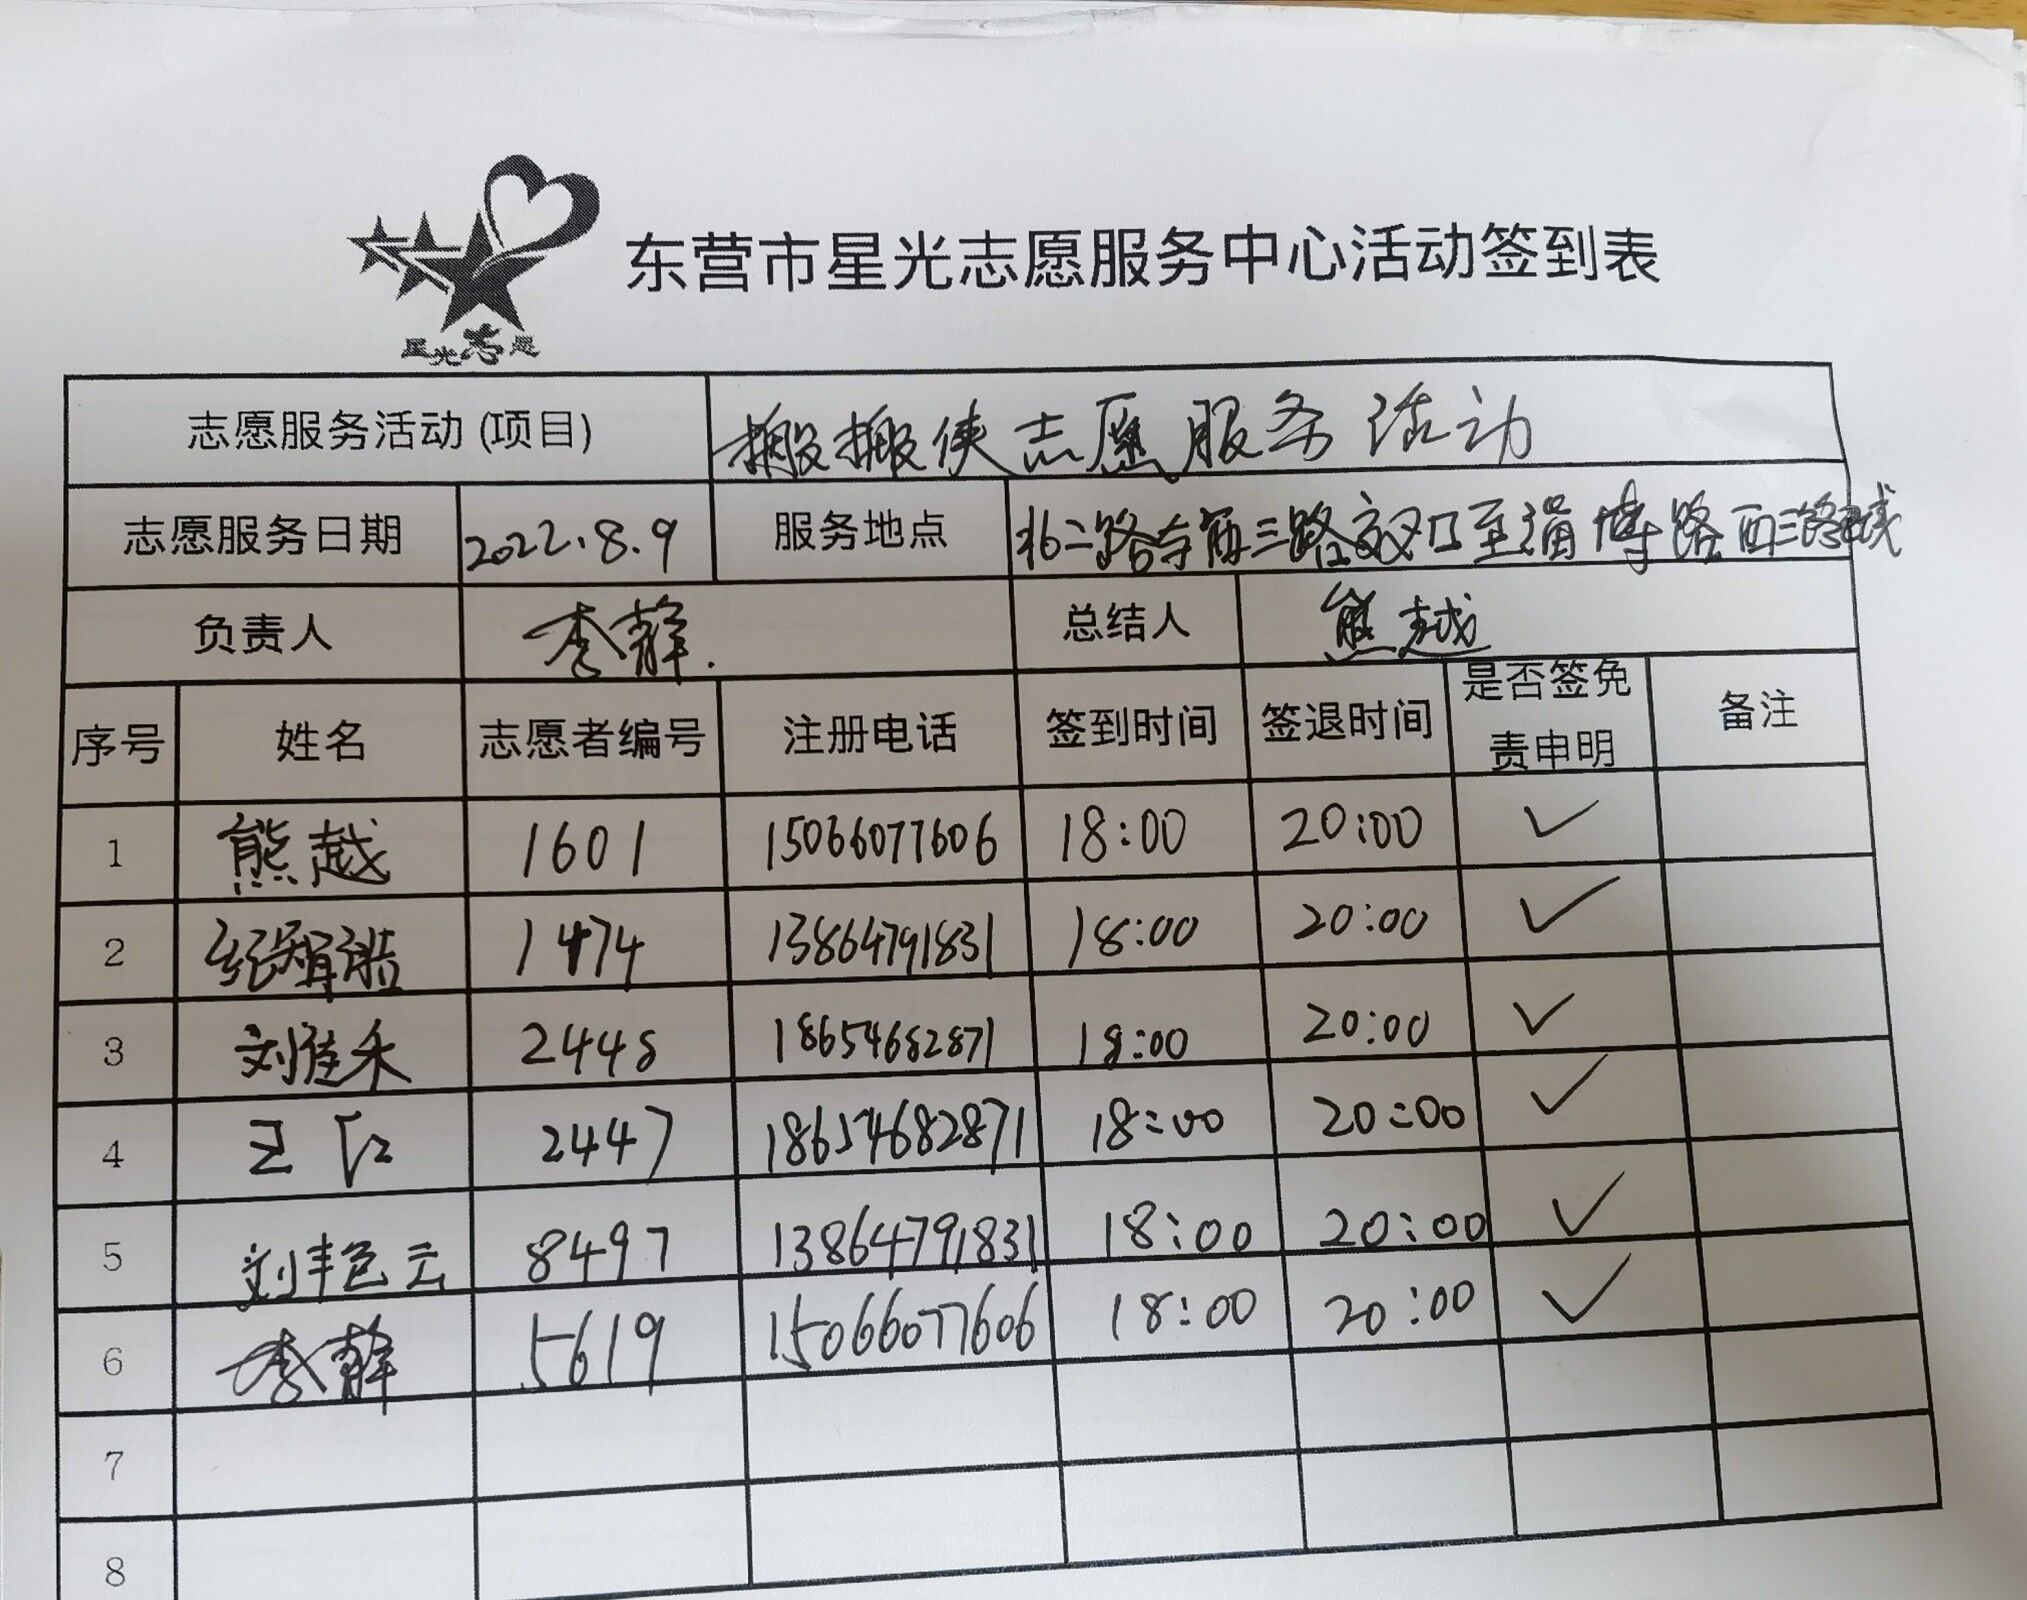 星光志愿
东营市星光志愿服务中心活动签到表
志愿服务活动(项目) 搬搬侠志愿服务活动
志愿服务日期 2022.8.9 服务地点 北二路与西三路交叉口至淄博路西三路
负责人 李静. 总结人 熊越
序号 姓名 志愿者编号 注册电话 签到时间 签退时间 是否签免责申明 备注
1 熊越 1601 15066077606 18:00 20:00 ✓
2 1474 13864791831 18:00 20:00 ✓
3 刘佳禾 2448 18654682871 18:00 20:00 ✓
4 王江 2447 18654682871 18:00 20:00 ✓
5 刘艳云 8497 13864791831 18:00 20:00 ✓
6 李静 5619 15066077606 18:00 20:00 ✓
7
8